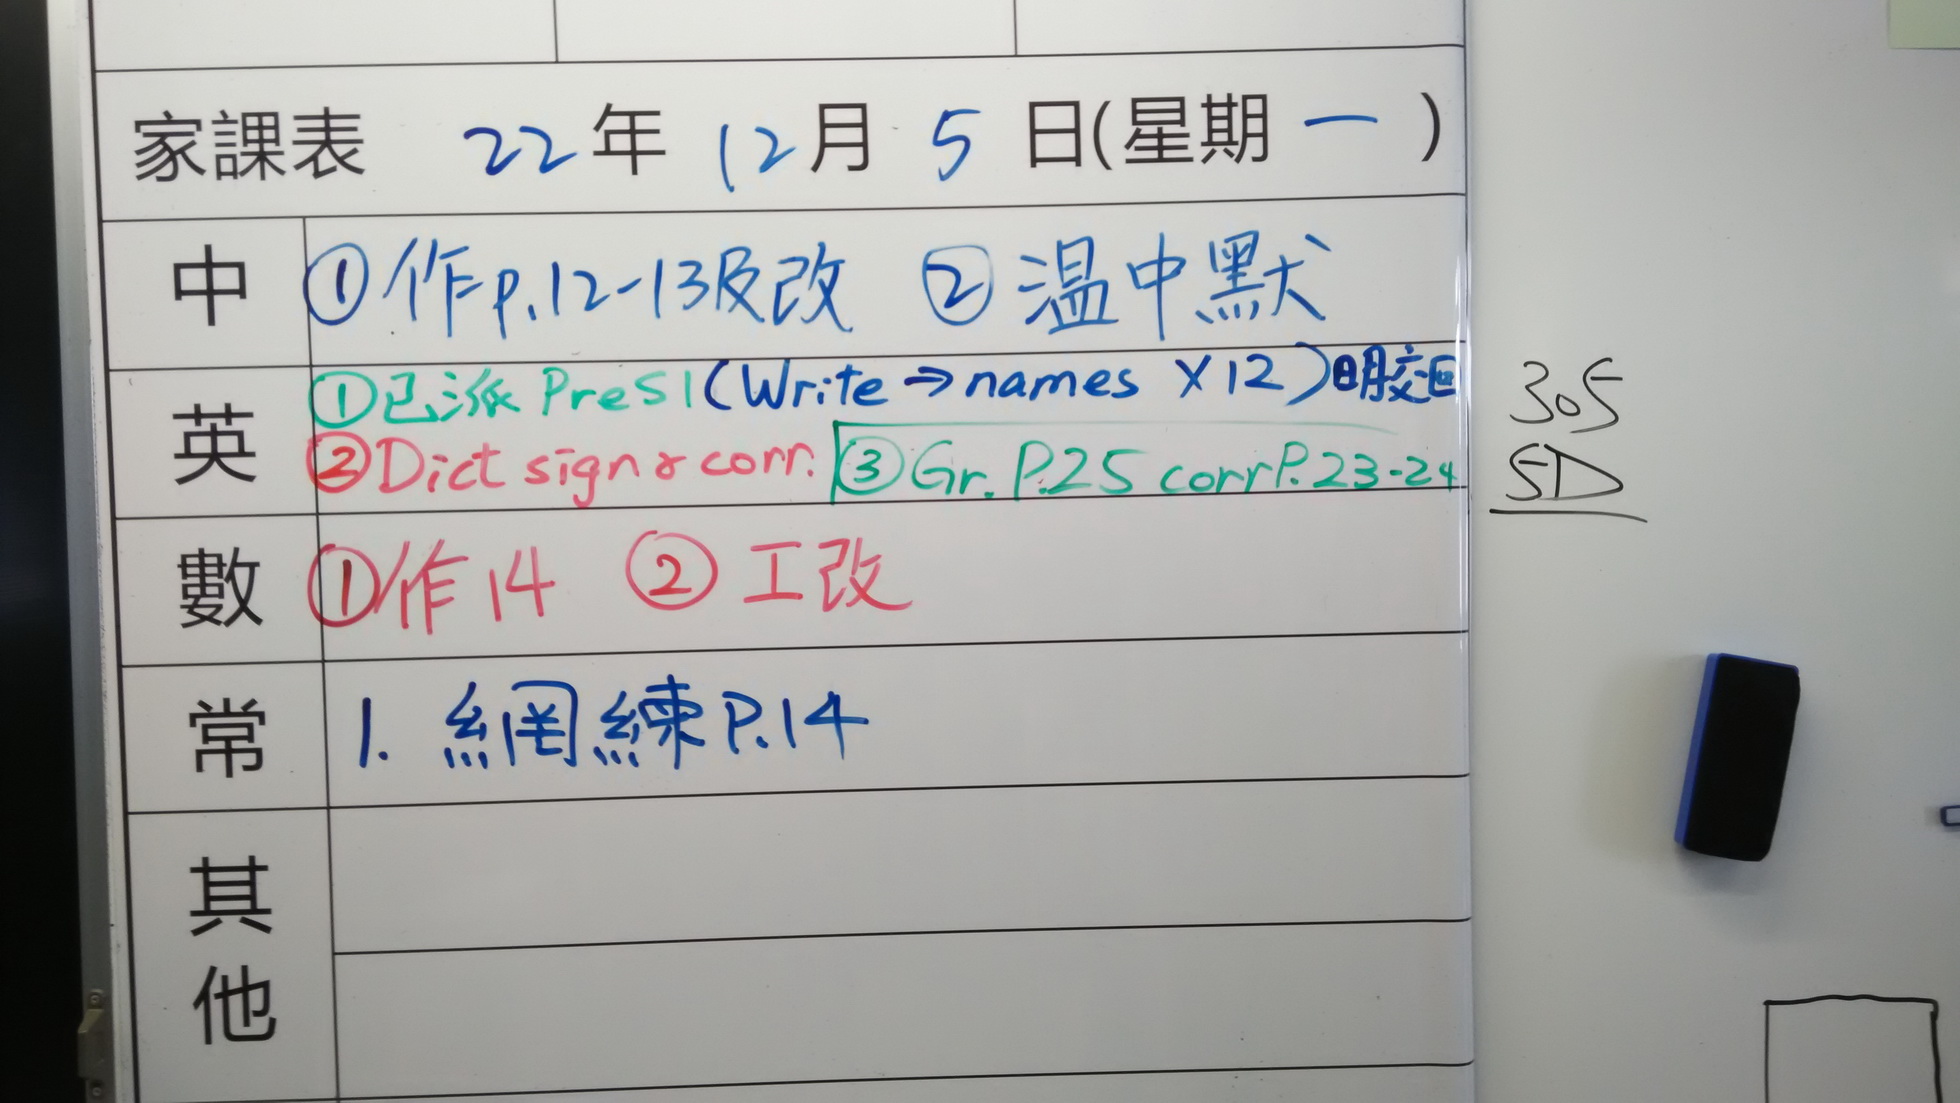 家課表 22年 12月 5日(星期一)
中 ①作p.12-13及改 ②温中默
英 ①已派 Pre S1 (Write → names X12) 明交回
②Dict sign & corr. ③Gr. P.25 corr P.23-24
數 ①作14 ②工改
常 1. 網練P.14
其他
305
5D